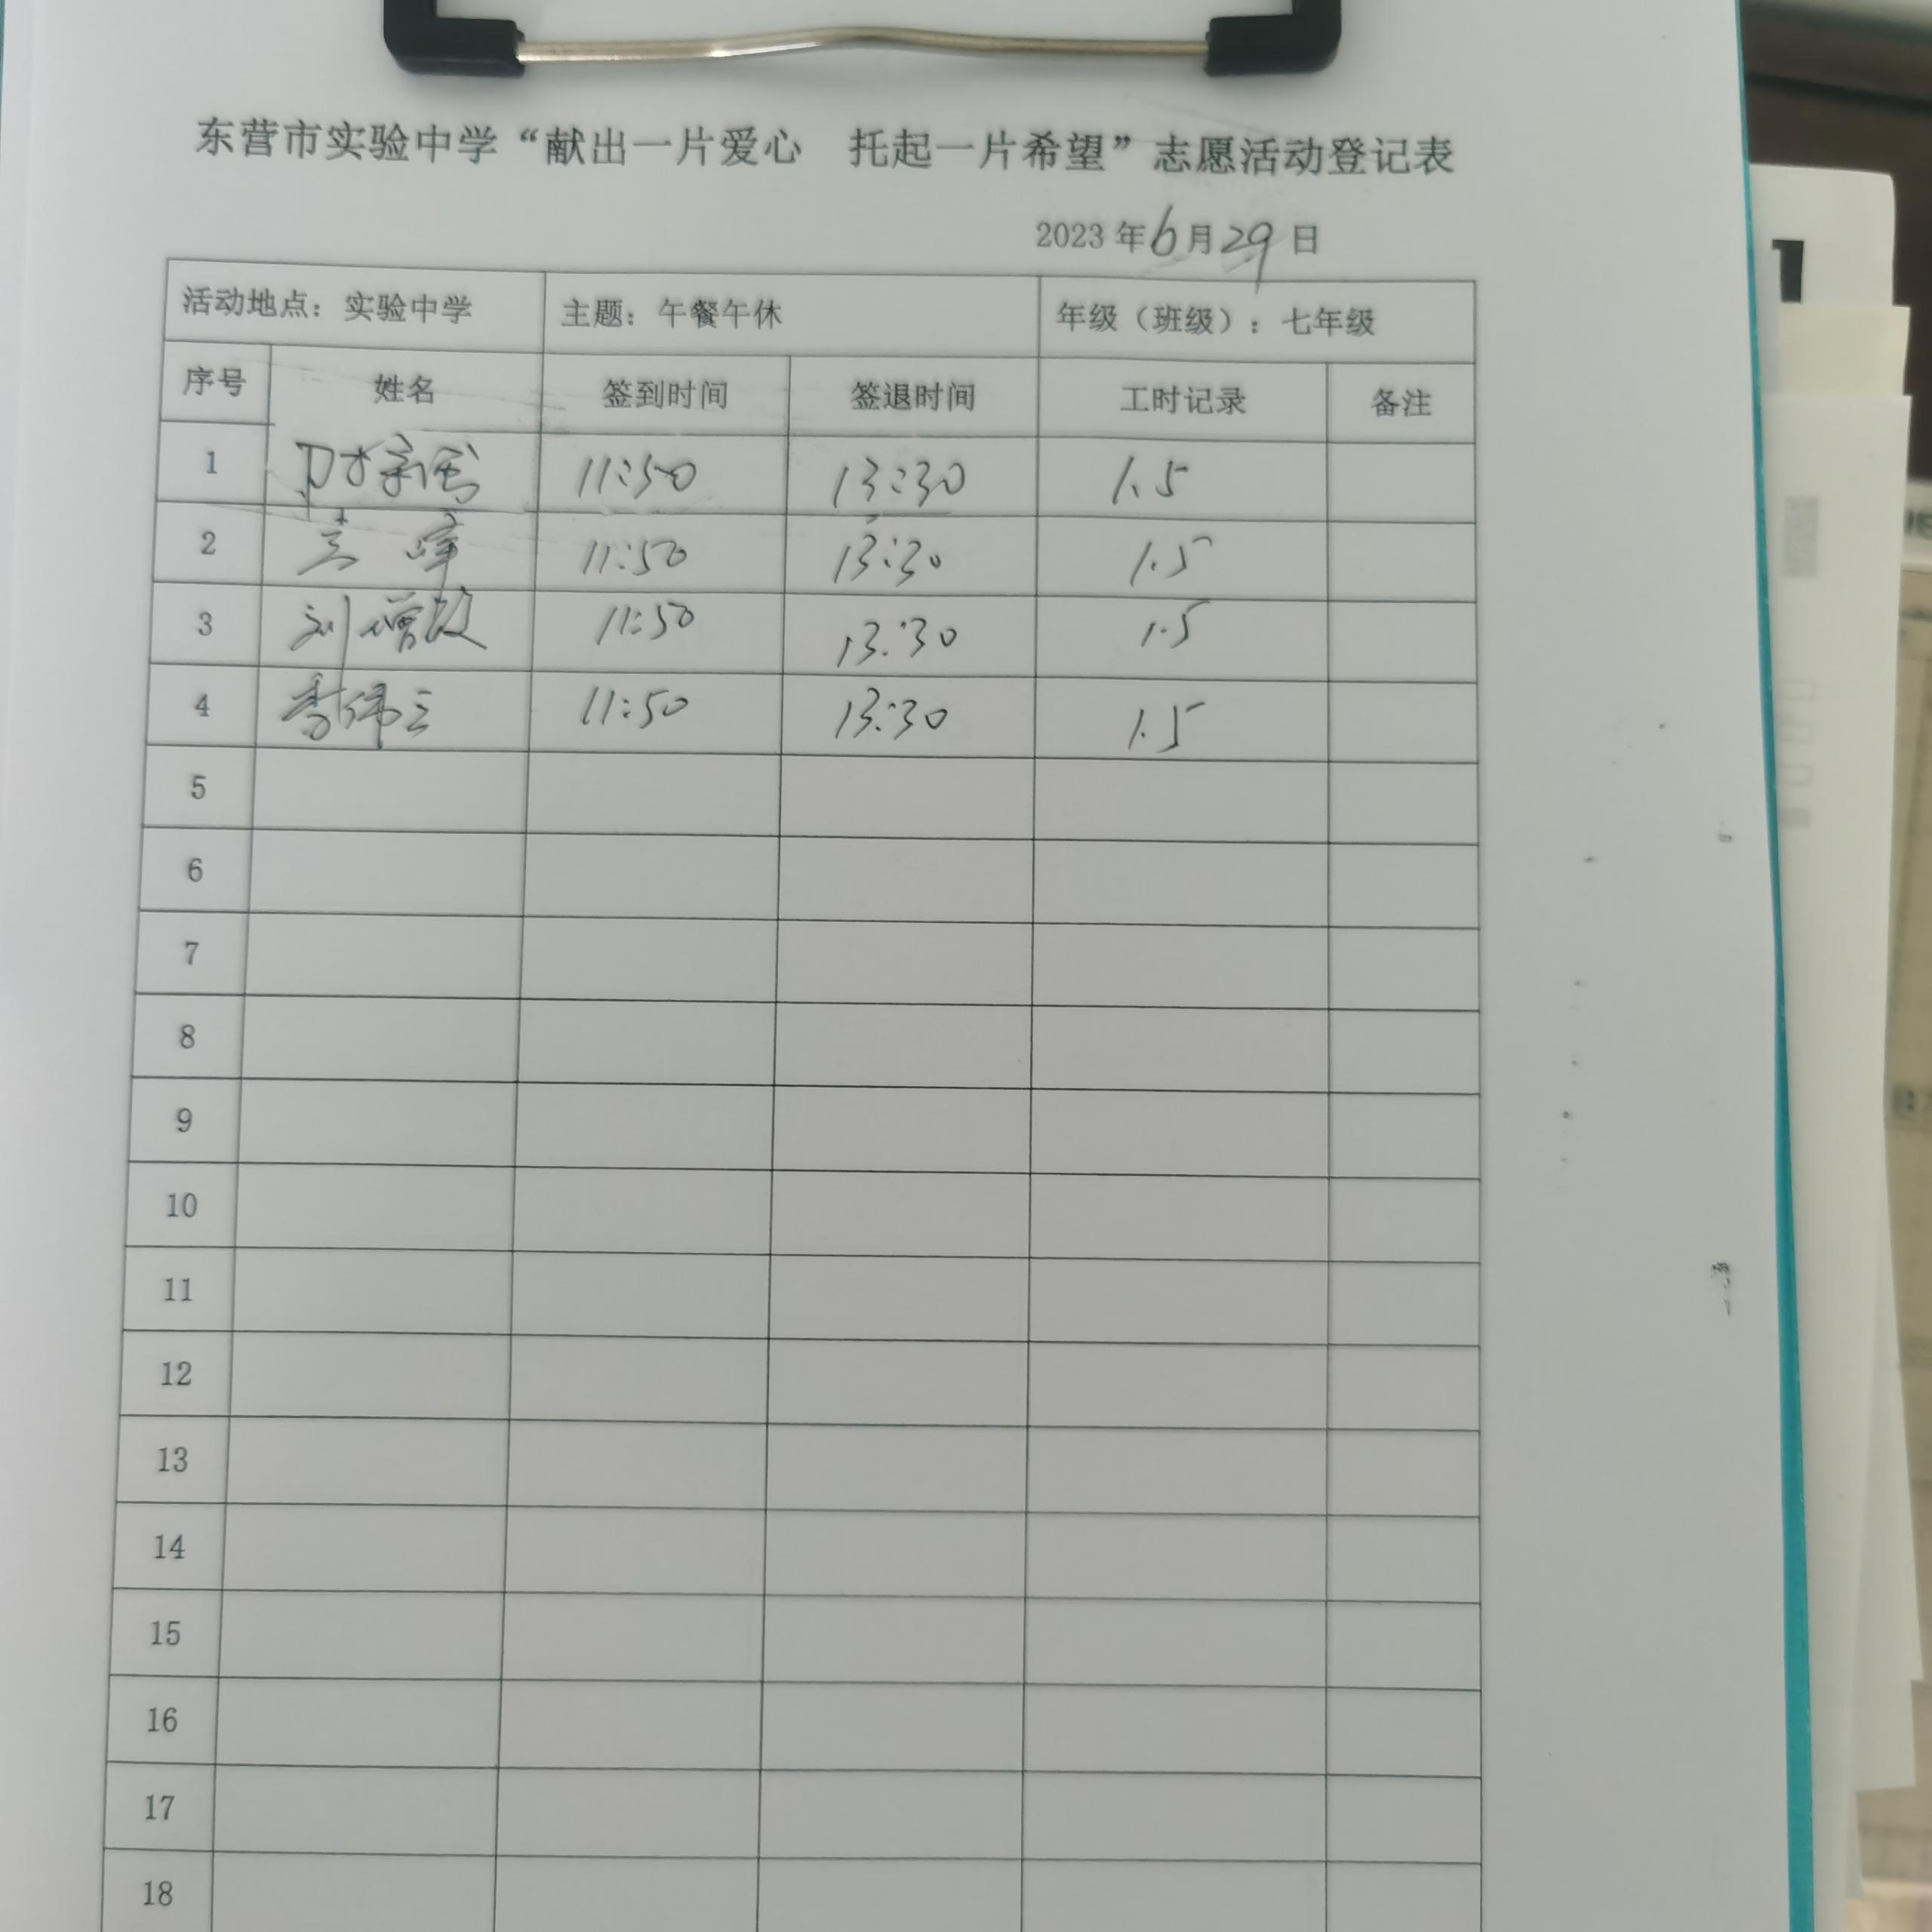 东营市实验中学“献出一片爱心 托起一片希望”志愿活动登记表
2023年6月29日
活动地点：实验中学 主题：午餐午休 年级（班级）：七年级
序号 姓名 签到时间 签退时间 工时记录 备注
1 11:50 13:30 1.5
2 11:50 13:30 1.5
3 刘增 11:50 13:30 1.5
4 李伟 11:50 13:30 1.5
5
6
7
8
9
10
11
12
13
14
15
16
17
18